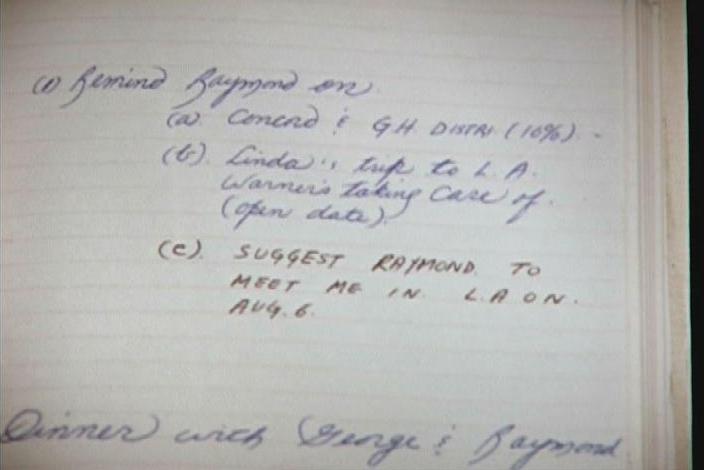 (1) Remind Raymond on
(a) Concord & G.H. DISTRI. (10%) -
(b). Linda's trip to L.A.
Warner's taking care of.
(open date)
(c). SUGGEST RAYMOND. TO
MEET ME IN. L.A ON.
AUG. 6.
Dinner with George & Raymond